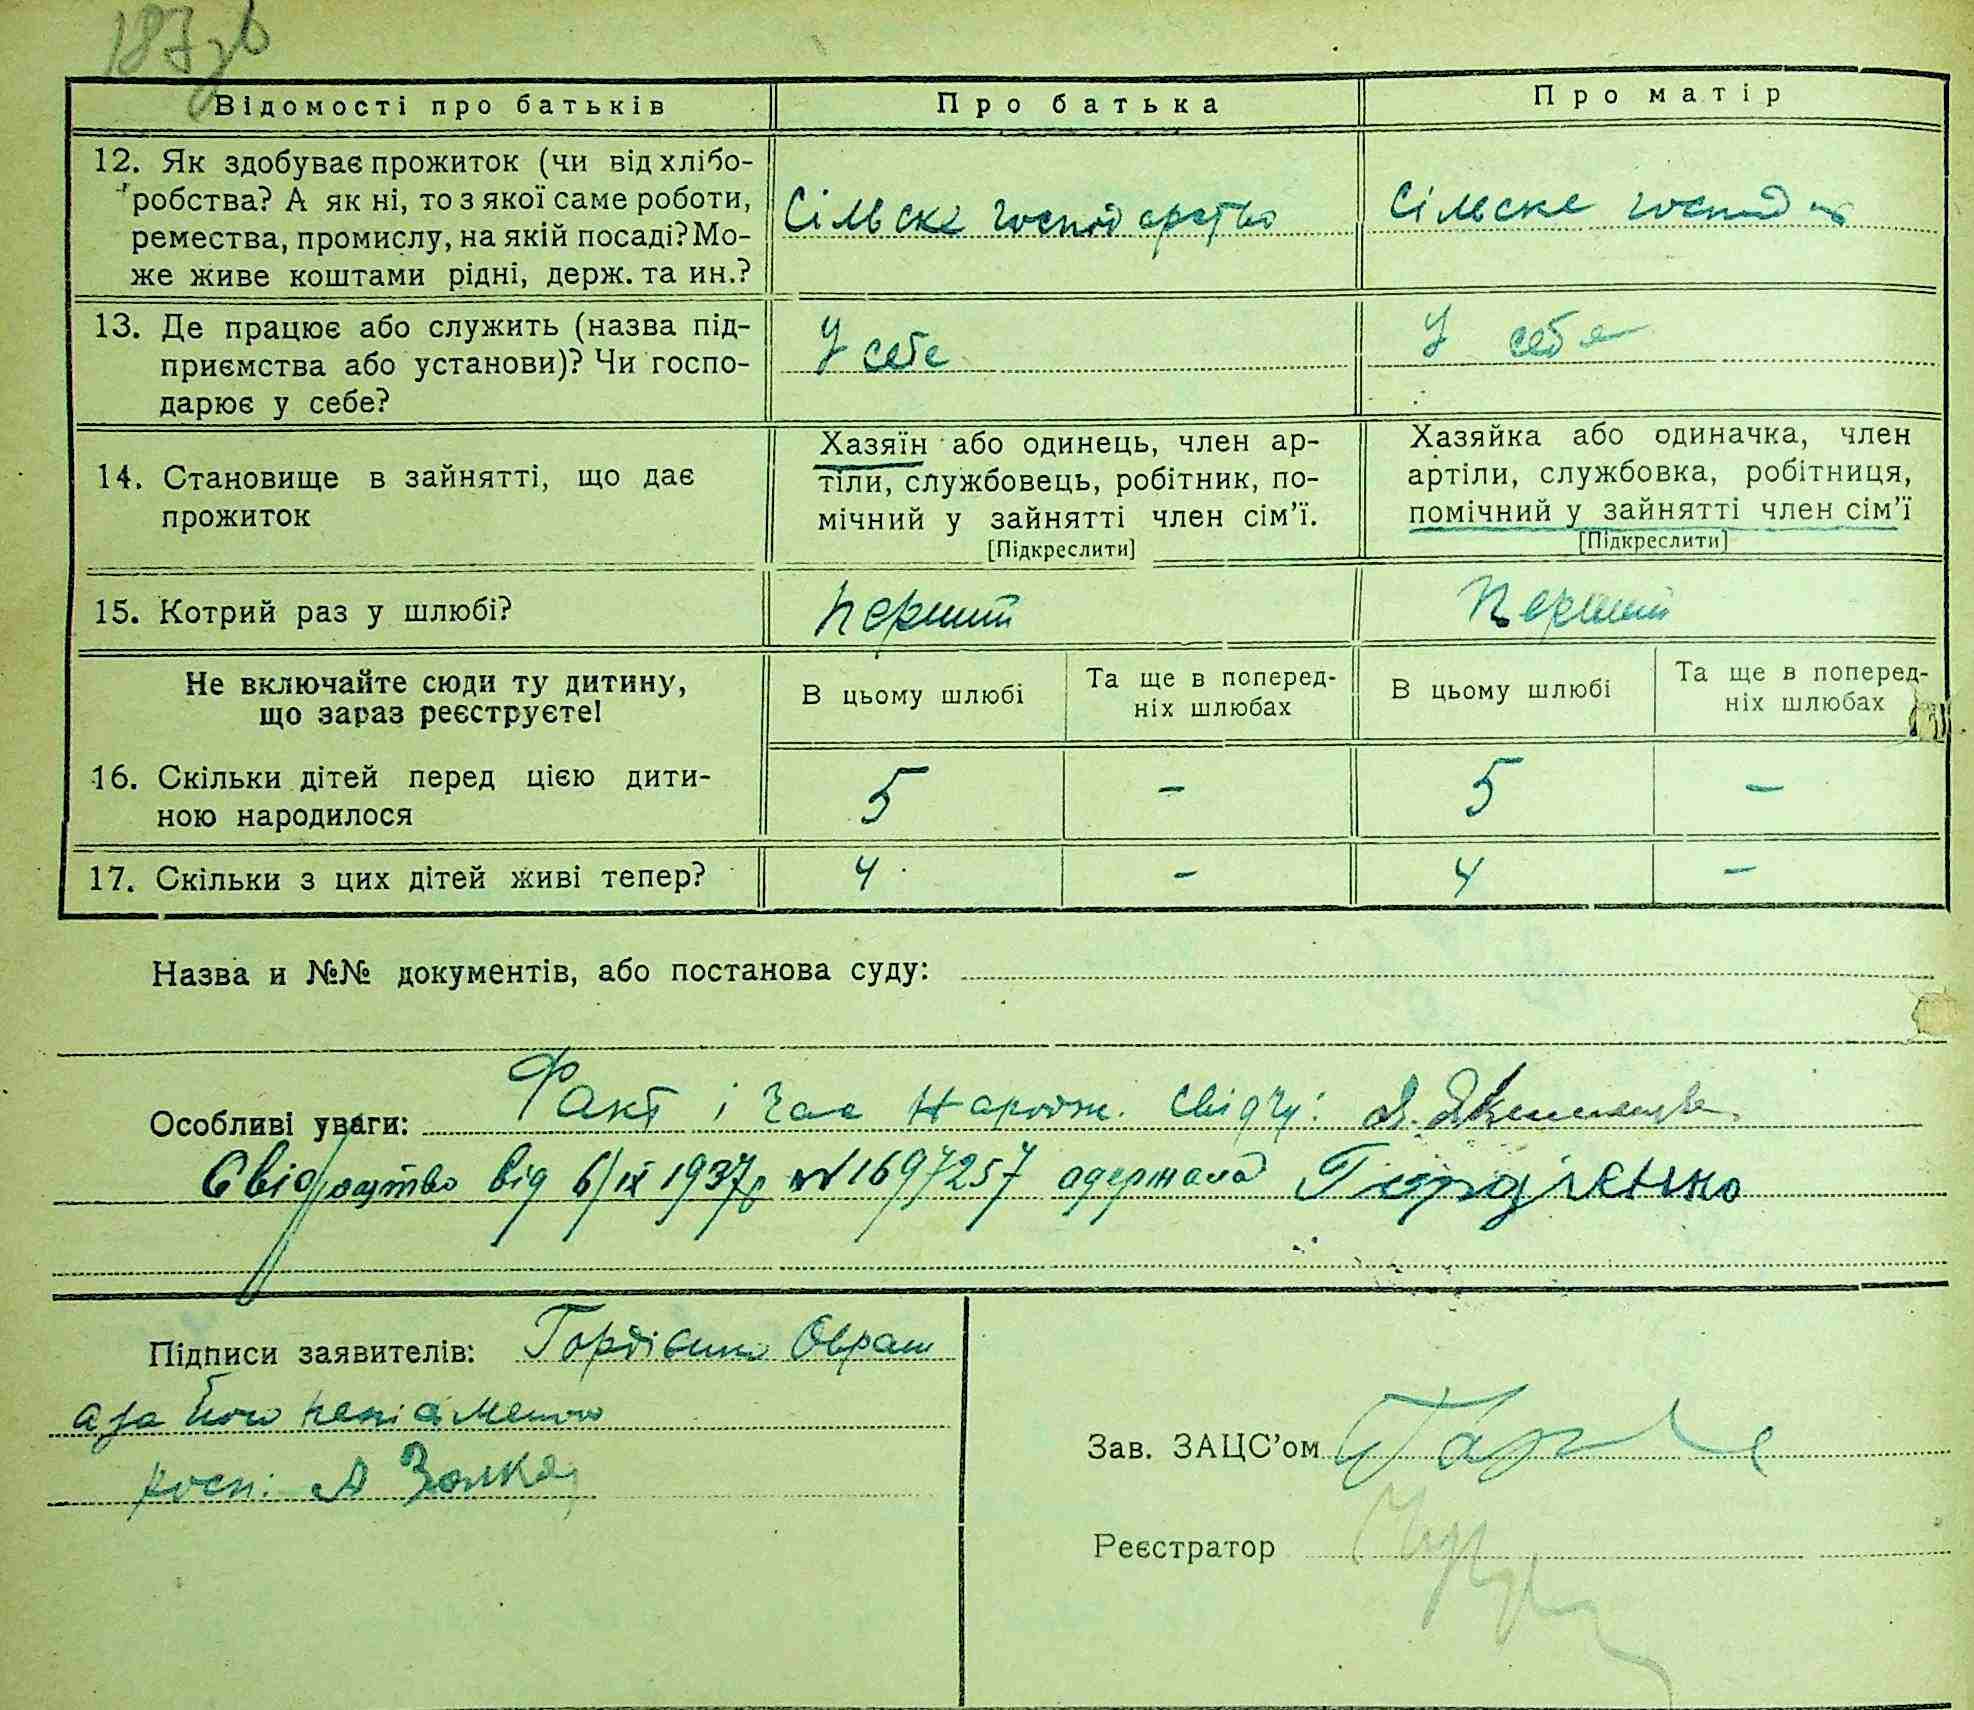 187зв
Відомості про батьків
Про батька
Про матір
12. Як здобуває прожиток (чи від хлібо-
робства? А як ні, то з якої саме роботи,
ремества, промислу, на якій посаді? Мо-
же живе коштами рідні, держ. та ин.?
Сільске господарство
Сільске
13. Де працює або служить (назва під-
приємства або установи)? Чи госпо-
дарює у себе?
У себе
У себе
14. Становище в зайнятті, що дає
прожиток
Хазяїн або одинець, член ар-
тіли, службовець, робітник, по-
мічний у зайнятті член сім'ї.
[Підкреслити]
Хазяйка або одиначка, член
артіли, службовка, робітниця,
помічний у зайнятті член сім'ї
[Підкреслити]
15. Котрий раз у шлюбі?
перший
перший
Не включайте сюди ту дитину,
що зараз реєструєте!
В цьому шлюбі
Та ще в поперед-
ніх шлюбах
В цьому шлюбі
Та ще в поперед-
ніх шлюбах
16. Скільки дітей перед цією дити-
ною народилося
5
-
5
-
17. Скільки з цих дітей живі тепер?
4
-
4
-
Назва и №№ документів, або постанова суду:
Особливі уваги: Факт і час народж. свідчу:
Свідоцтво від 6/IX 1937р №1697257 одержала
Підписи заявителів: Гордієнко
а за його
Зав. ЗАЦС'ом
Реєстратор